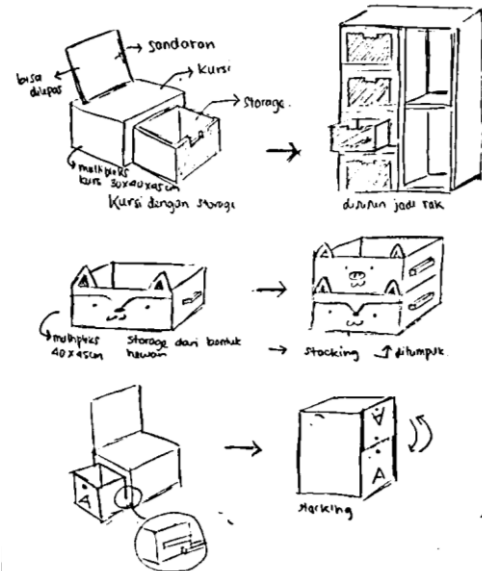 sandaran
bisa
dilepas
kursi
storage.
multipleks
kursi 30x40x45cm
Kursi dengan storage
disusun jadi rak
multipleks
40x45cm
storage dari bentuk
hewan
stacking
ditumpuk
A
A
A
stacking